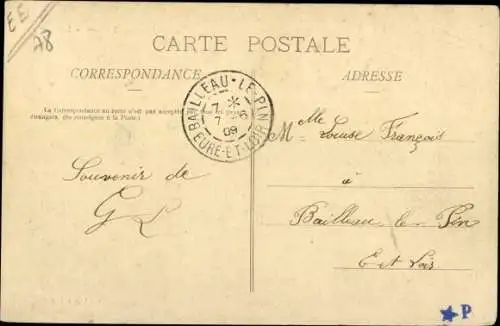 EE
78
CARTE POSTALE
CORRESPONDANCE
ADRESSE
La Correspondance au recto n'est pas acceptée
étrangers. (Se renseigner à la Poste.)
BAILLEAU-LE-PIN
7 *
7 - 6
09
EURE-ET-LOIR
Souvenir de
G L
Mlle Louise François
à
Bailleau le Pin
E et Loir
★P